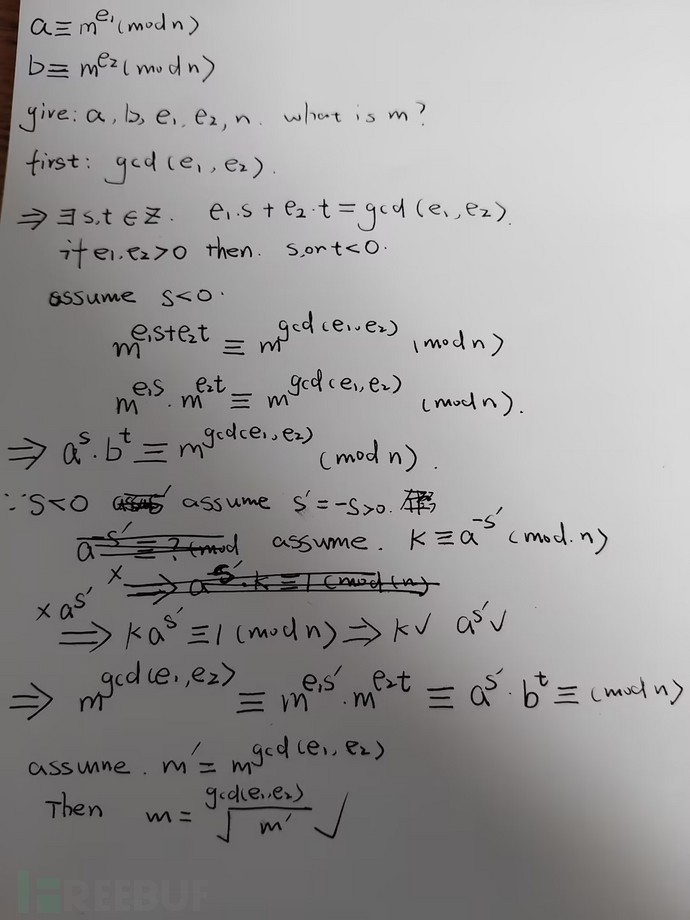 a ≡ m^e₁ (mod n)
b ≡ m^e₂ (mod n)
give: a, b, e₁, e₂, n. what is m?
first: gcd(e₁, e₂).
⇒ ∃ s,t ∈ Z. e₁·s + e₂·t = gcd(e₁, e₂).
if e₁, e₂>0 then. s, or t<0.
assume s<0.
m^(e₁s+e₂t) ≡ m^gcd(e₁,e₂) (mod n)
m^(e₁s) · m^(e₂t) ≡ m^gcd(e₁,e₂) (mod n).
⇒ a^s · b^t ≡ m^gcd(e₁,e₂) (mod n).
∵ s<0 assume s′=-s>0.
a^-s′ ≡ ? (mod assume. K ≡ a^-s′ (mod. n)
× ⇒ a^s′·k ≡ 1 (mod (n)
× a^s′ ⇒ K a^s′ ≡ 1 (mod n) ⇒ K✓ a^s′✓
⇒ m^gcd(e₁,e₂) ≡ m^(e₁s′) · m^(e₂t) ≡ a^s′ · b^t ≡ (mod n)
assume. m′ = m^gcd(e₁, e₂)
Then m = ^gcd(e₁,e₂)√m′ ✓
FREEBUF